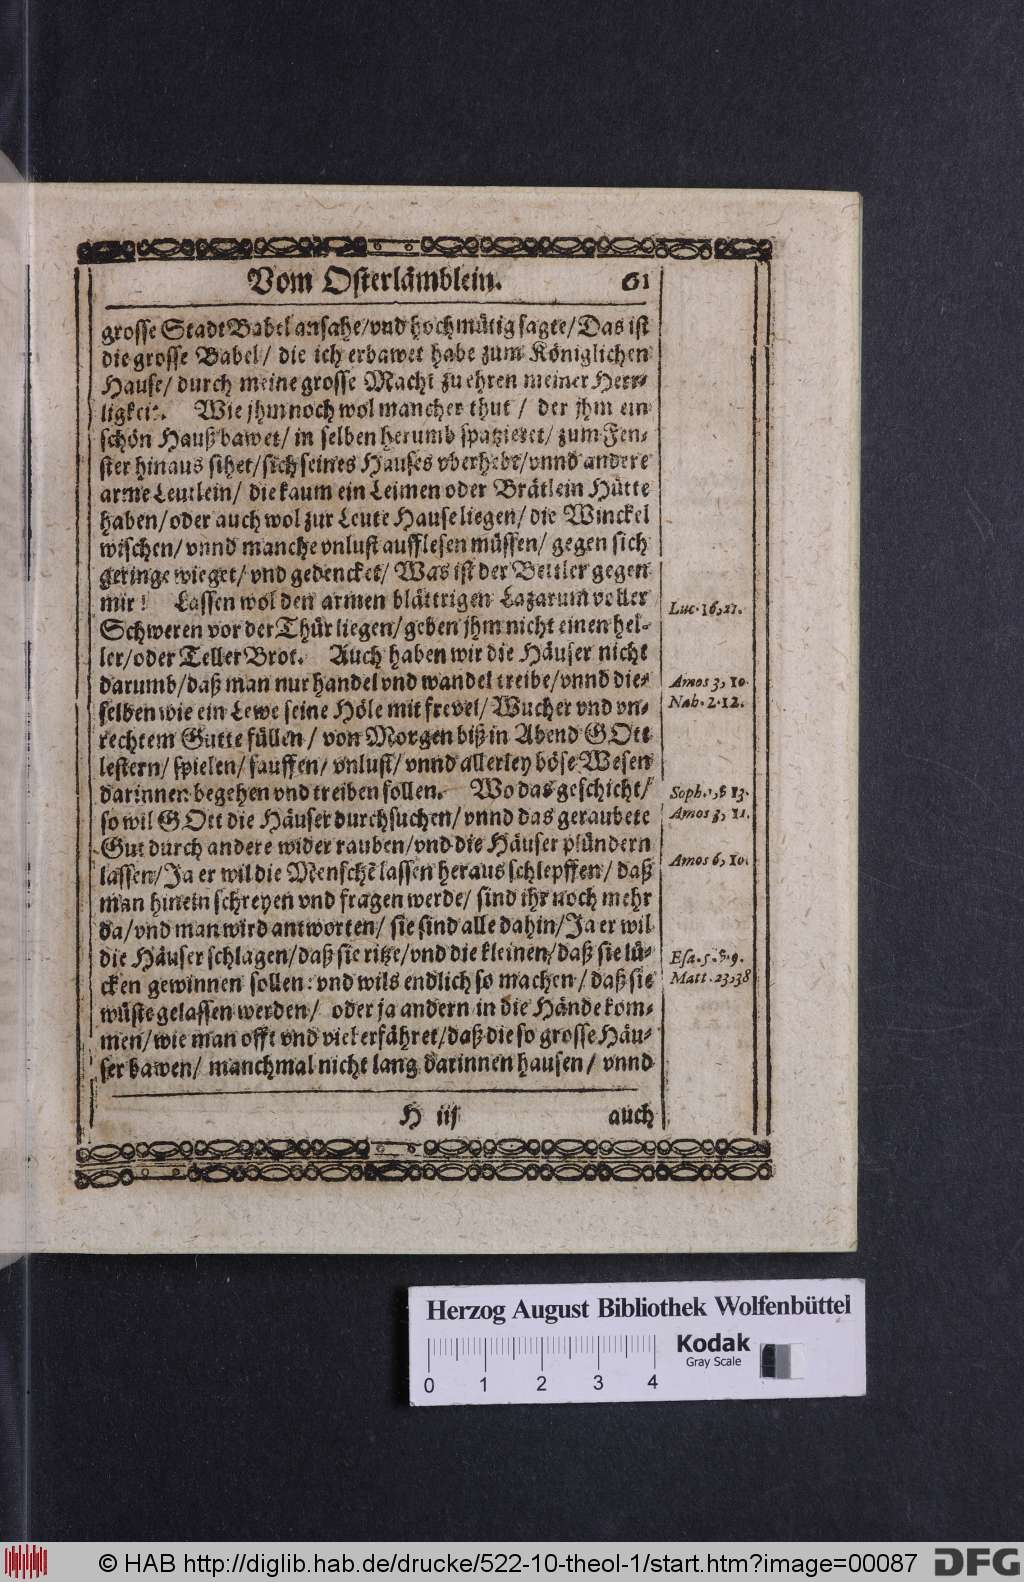 Vom Osterlämblein. 61
grosse Stadt Babel ansahe/vnd hochmütig sagte/Das ist
die grosse Babel/ die ich erbawet habe zum Königlichen
Hause/ durch meine grosse Macht zu ehren meiner Herr-
ligkeit. Wie jhm noch wol mancher thut / der jhm ein
schön Hauß bawet/ in selben herumb spatzieret/ zum Fen-
ster hinaus sihet/sich seines Hauses vberhebt/vnnd andere
arme Leutlein/ die kaum ein Leimen oder Brätlein Hütte
haben/oder auch wol zur Leute Hause liegen/ die Winckel
wischen/ vnnd manche vnlust aufflesen müssen/ gegen sich
geringe wieget/ vnd gedencket/ Was ist der Bettler gegen
mir! Lassen wol den armen blättrigen Lazarum voller
Luc. 16, 21.
Schweren vor der Thür liegen/geben jhm nicht einen hel-
ler/oder Teller Brot. Auch haben wir die Häuser nicht
darumb/daß man nur handel vnd wandel treibe/vnnd die-
Amos 3, 10.
selben wie ein Lewe seine Höle mit frevel/ Wucher vnd vn-
Nah. 2. 12.
rechtem Gutte füllen / von Morgen biß in Abend GOtt
lestern/ spielen/ sauffen/ vnlust/ vnnd allerley böse Wesen
darinnen begehen vnd treiben sollen. Wo das geschicht/
Soph. 1, 8 13.
so wil GOtt die Häuser durchsuchen/ vnnd das geraubete
Amos 3, 11.
Gut durch andere wider rauben/vnd die Häuser plündern
lassen/Ja er wil die Menschẽ lassen heraus schlepffen/ daß
Amos 6, 10.
man hinein schreyen vnd fragen werde/ sind ihr noch mehr
da/vnd man wird antworten/ sie sind alle dahin/Ja er wil
die Häuser schlagen/daß sie ritze/vnd die kleinen/daß sie lü-
Esa. 5. 8. 9.
cken gewinnen sollen: vnd wils endlich so machen / daß sie
Matt. 23, 38
wüste gelassen werden/ oder ja andern in die Hände kom-
men/wie man offt vnd viel erfähret/daß die so grosse Häu-
ser bawen/ manchmal nicht lang darinnen hausen/ vnnd
H iij auch
Herzog August Bibliothek Wolfenbüttel
Kodak
Gray Scale
0 1 2 3 4
© HAB http://diglib.hab.de/drucke/522-10-theol-1/start.htm?image=00087
DFG